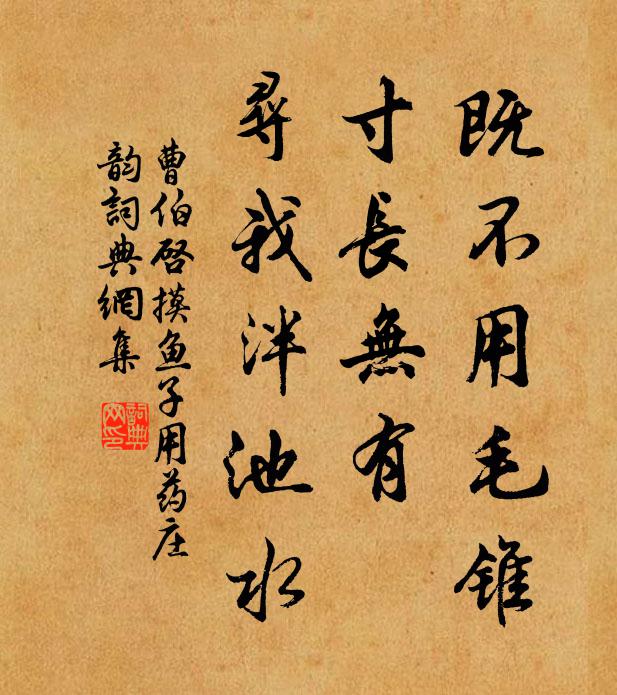 既不用毛錐
寸長無有
尋我泮池水
曹伯啓摸鱼子用药庄
韵詞典網集
詞典
网印